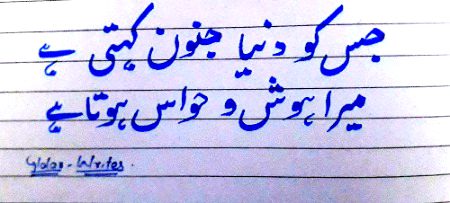 جس کو دنیا جنون کہتی ہے
میرا ہوش و حواس ہوتا ہے
Writes